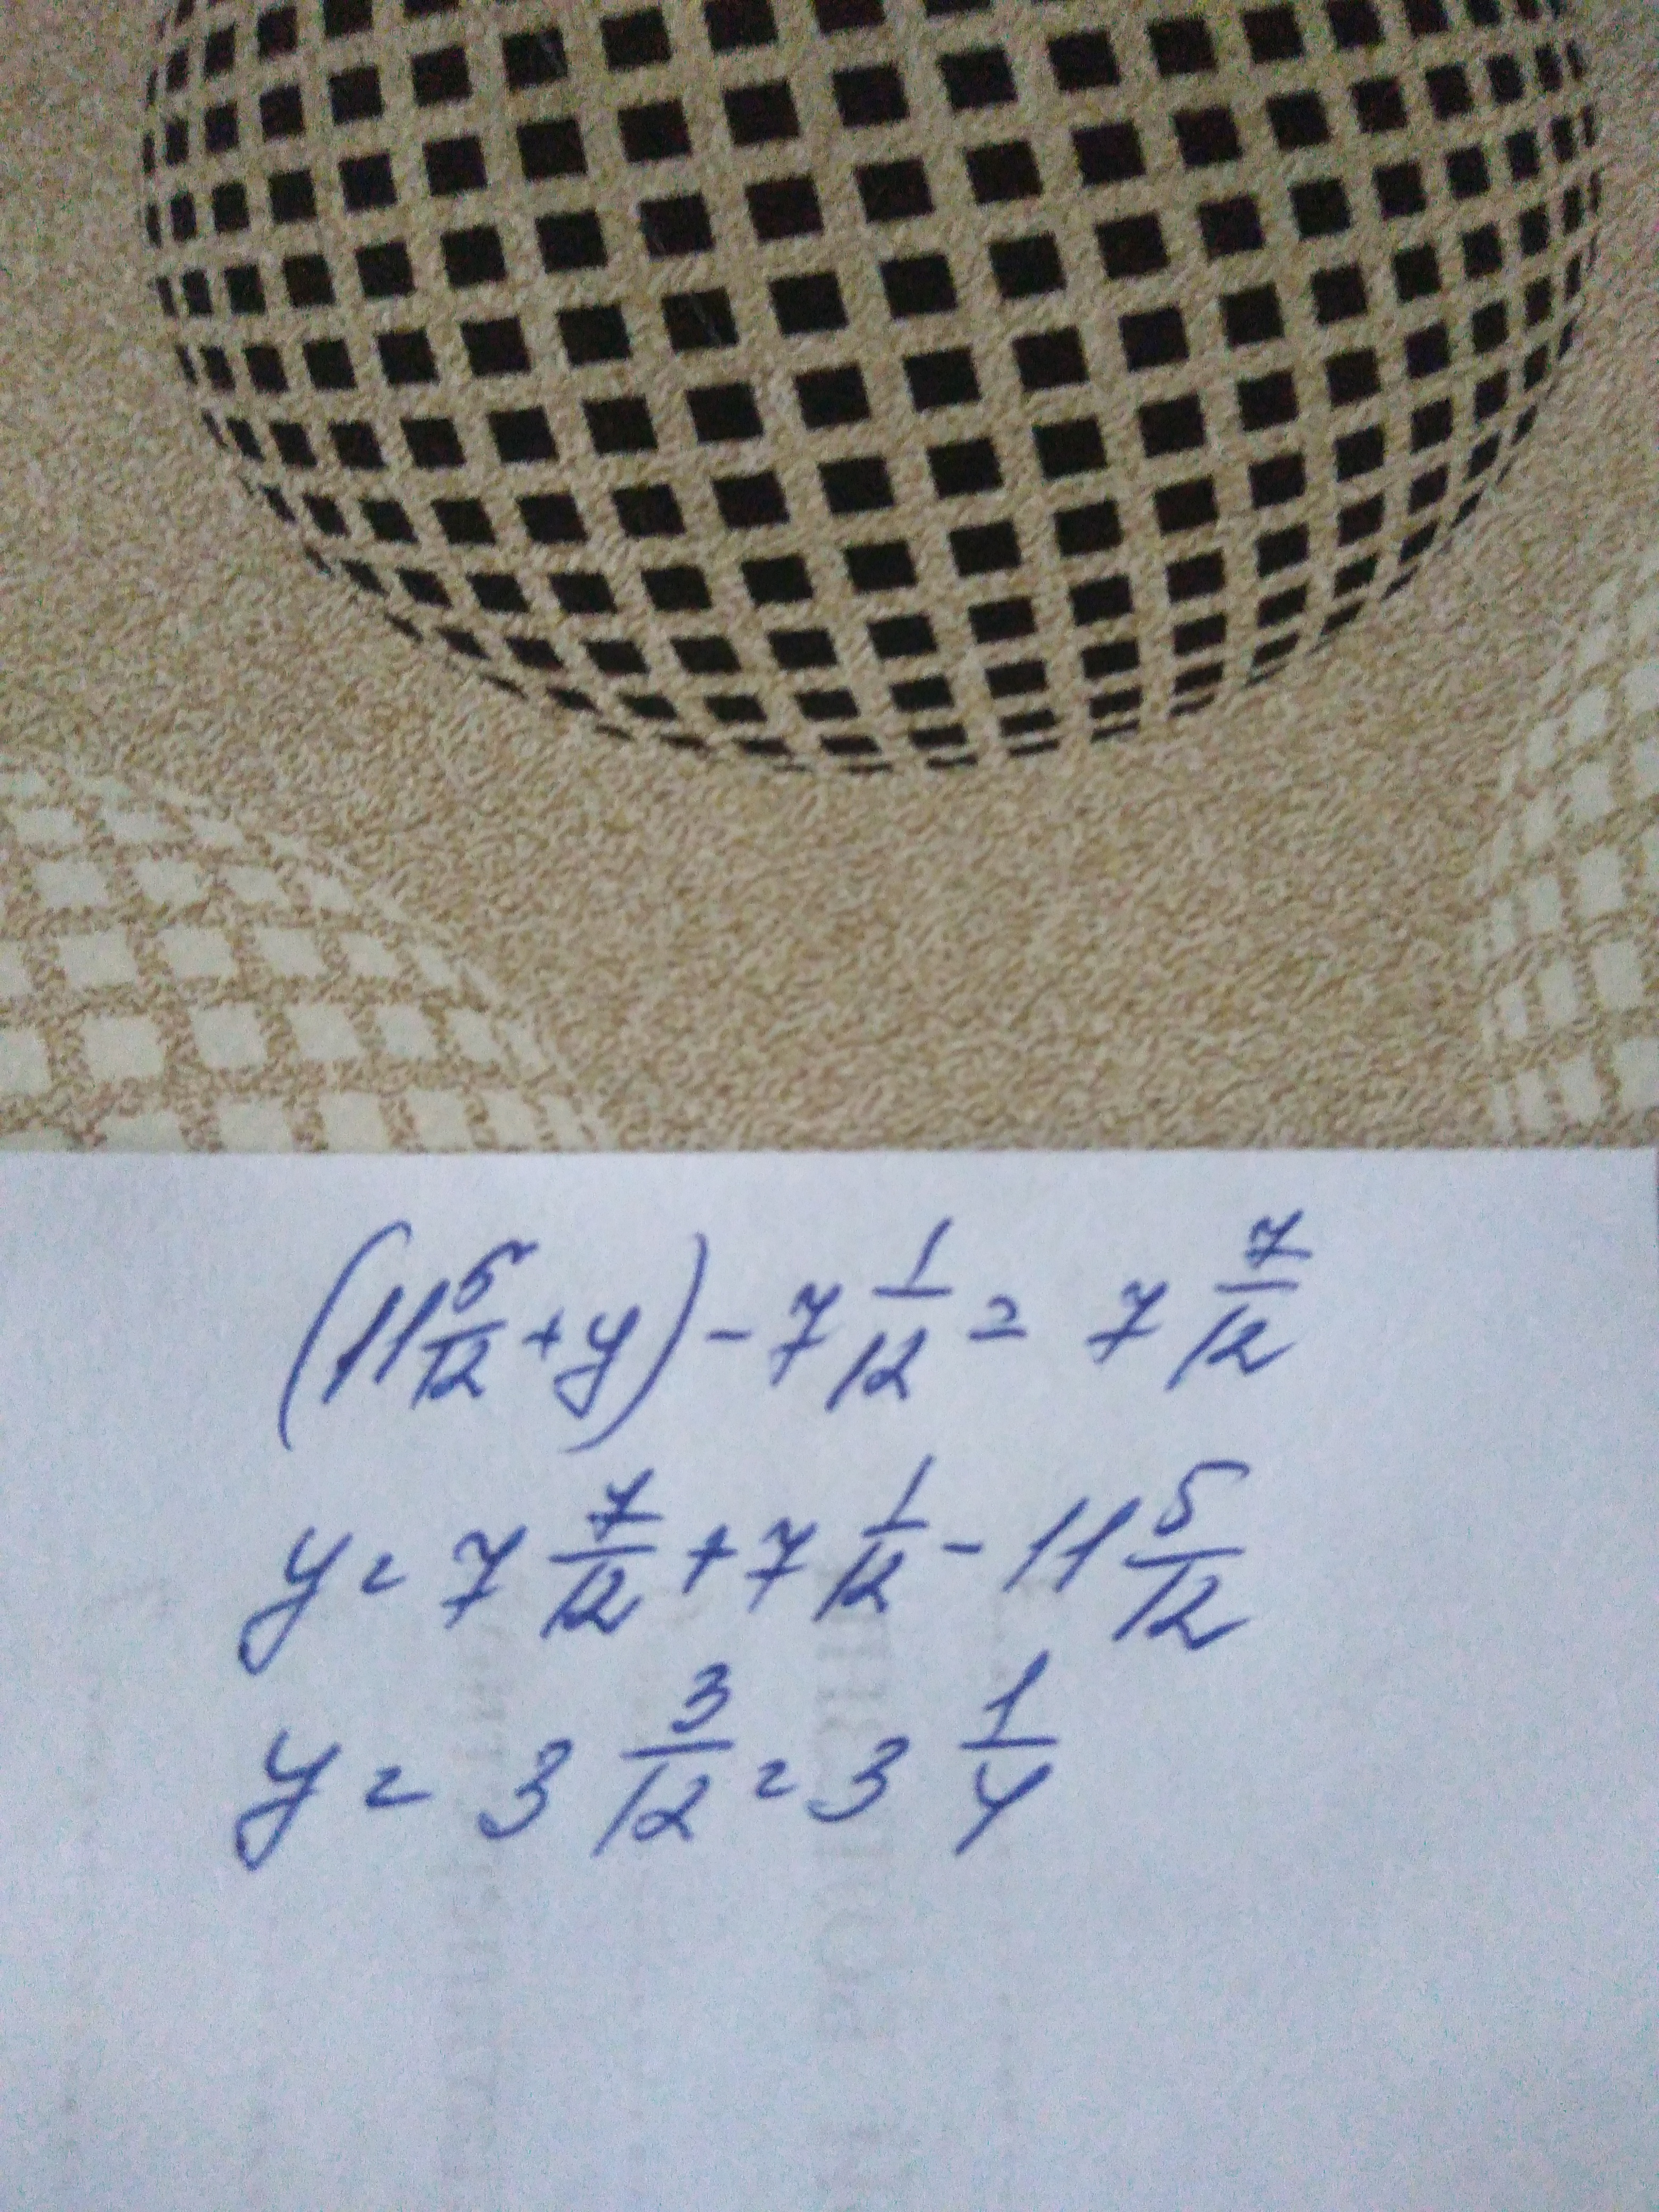 (11 5/12 + y) - 7 1/12 = 7 7/12
y = 7 7/12 + 7 1/12 - 11 5/12
y = 3 3/12 = 3 1/4